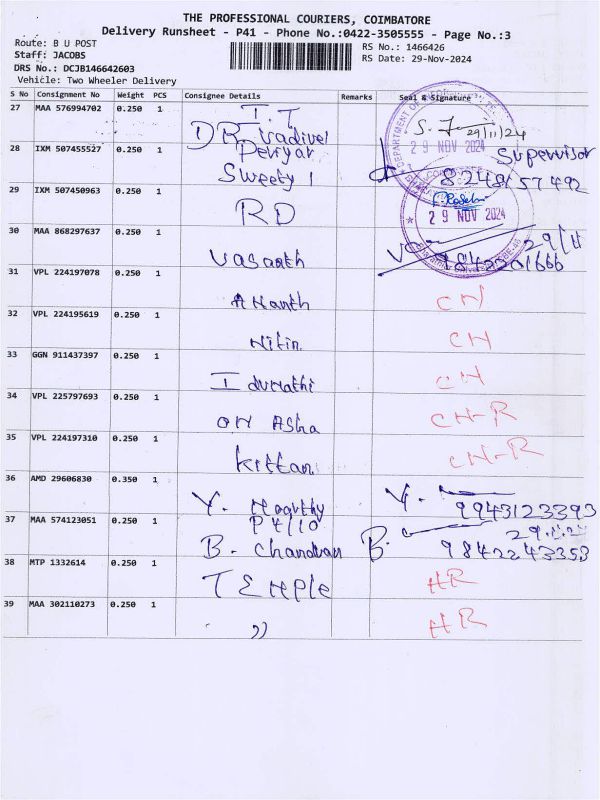 THE PROFESSIONAL COURIERS, COIMBATORE
Delivery Runsheet - P41 - Phone No.:0422-3505555 - Page No.:3
Route: B U POST
Staff: JACOBS
DRS No.: DCJB146642603
Vehicle: Two Wheeler Delivery
RS No.: 1466426
RS Date: 29-Nov-2024
S No Consignment No Weight PCS Consignee Details Remarks Seal & Signature
27 MAA 576994702 0.250 1 I.T
DR. Vadivel 29/11/24
29 NOV 2024
28 IXM 507455527 0.250 1 Periyar Supervisor
Sweety 1 8248157492
29 IXM 507450963 0.250 1
RD 29 NOV 2024
30 MAA 868297637 0.250 1 29/11
Vasanth 9842201666
31 VPL 224197078 0.250 1
Ananth CN
32 VPL 224195619 0.250 1
Nitin CN
33 GGN 911437397 0.250 1
Idumathi CN
34 VPL 225797693 0.250 1
ON Asha CN-R
35 VPL 224197310 0.250 1
Kittan CN-R
36 AMD 29606830 0.350 1
Y. Y. 9943123393
37 MAA 574123051 0.250 1 P4/10
B. Chandran B. 9842243353
38 MTP 1332614 0.250 1
TEMPLE HR
39 MAA 302110273 0.250 1
" HR